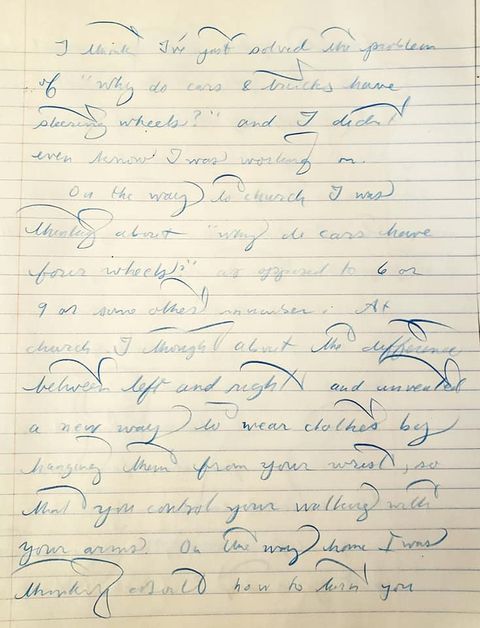 I think I've just solved the problem
of "why do cars & trucks have
steering wheels?" and I didn't
even know I was working on.
On the way to church I was
thinking about "why do cars have
four wheels?" as opposed to 6 or
9 or some other number. At
church I thought about the difference
between left and right and invented
a new way to wear clothes by
hanging them from your wrist, so
that you control your walking with
your arms. On the way home I was
thinking about how to turn you